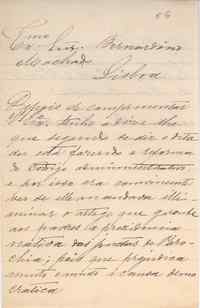 Exmo
Snr. Bernardino
Machado
Lisboa
Depois de comprimentar
V. Exa. tenho a dizer-lhe
que segundo se diz o dita-
dor está fazendo a reforma
do Codigo administrativo
e por isso era conveniente
ver se elle mandava elli-
minar o artigo que garante
aos padres a presidencia
das juntas de Paro-
chia; pois que prejudica
muito a causa demo-
cratica